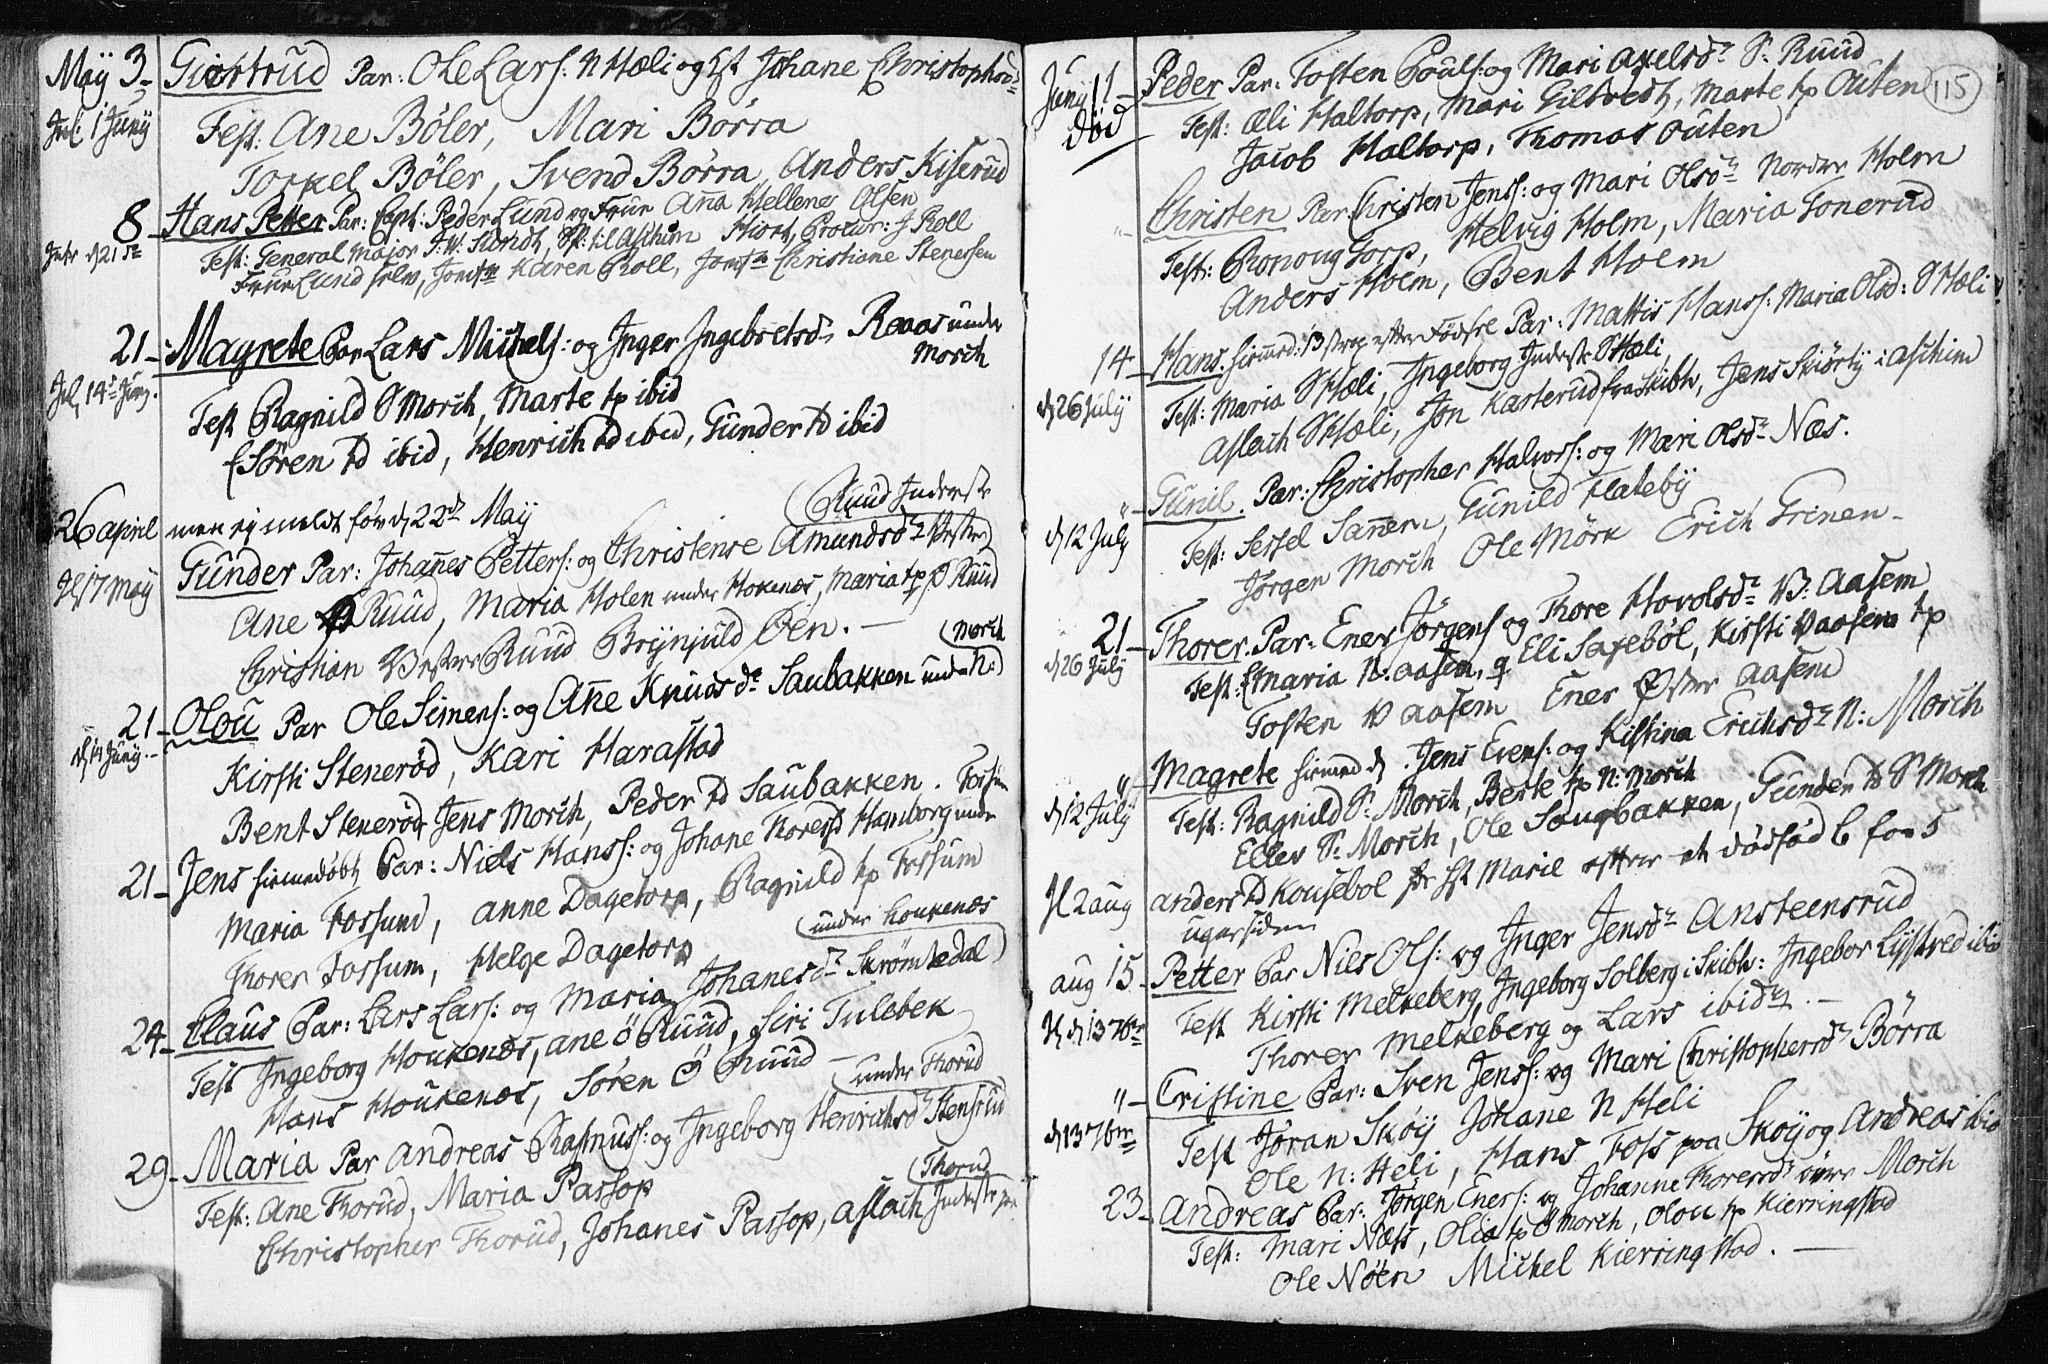 Maÿ 3 Giertrud Par: Ole Lars: N Hæli og Johane Christophers
Jntr: 1 Junÿ
Test: Ane Bøler, Mari Børra
Torkel Bøler, Svend Børra, Anders Kiserud
8 Hans Petter Par: Capt: Peder Lund og Frue Anna Hellene Olsen
Test: General Major Sundt, til Aschim Hiort, Procur: J Roll
Frue Lund selv, Jomfr Karen Roll, Jomfr Christiane Stenersen
21 Magrete Par Lars Michels: og Inger Ingebretsd Raaas under
Morch
14 Juny.
Test Ragnild S Morch, Marte tp ibid
Søren td ibid, Henrich td ibid, Gunder td ibid
26 april men ej meldt før d 22de Maÿ
(Ruud Inderste
17 Maÿ
Gunder Par: Johannes Petters: og Christense Amundsd Vestre)
Ane Ruud, Maria Holen under Hokenæs, Maria tp Ø Ruud
Christian Vestre Ruud Brÿnjuld Øen. —
(Morch
21 Olou Par Ole Simens: og Ane Knudsd Saubakken under N:)
d 14 Juny.
Kirsti Stenerød, Kari Harastad
Bent Stenerød Jens Morch, Peder td Saubakken.
21 Jens hiemedøbt Par: Niels Hanss: og Johane Thoresd Hamborg under
Maria Fossum, Anne Dagetorp, Ragnild tp Fossum
Thorer Fossum, Helge Dagetorp
(under Houkenæs
24 Claus Par: Lars Lars: og Maria Johanesd Skrømtedal)
Test Ingeborg Houkenæs, ane Ø Ruud, Siri Tulebek
Hans Houkenæs, Søren Ø Ruud —
(under Thorud
29 Maria Par Andreas Rasmuss: og Ingeborg Henrichsd Stensrud
Test: Ane Thorud, Maria Passop
(Thorud
Christopher Thorud, Johanes Passop, Aslach Inderste paa
Juny 11 Peder Par: Tosten Pouls: og Mari Axelsd S: Ruud
115
død
Test: Eli Haltorp, Mari Giltvedt, Marte tp Outen
Jacob Haltorp, Thomas Outen
" Christen Par: Christen Jenss: og Mari Olsd Nordre Holm
Test: Ronoug Torp, Helvig Holm, Maria Tonerud
Anders Holm, Bent Holm
14 Hans. hiemed: strax efter Fødsel Par: Mattis Hanss: Maria Olsd: S Hæli
d 26 July
Test: Maria S Hæli, Ingeborg Inderste S Hæli,
Aslach S Hæli, Jon Kasterud fra Skibtv, Jens Skiørtÿ i Aschim
" Gunil. Par: Christopher Halvors: og Mari Olsd Næs.
d 12 July
Test: Sersel Sanem, Gunild Hatebÿ
Jørgen Morch Ole Mørk Erich Grinen
21 Thorer. Par: Ener Jørgens og Thore Hovolsd V: Aasem
d 26 July
Test: Maria N: aasem, Eli Saxebøl, Kirsti V aasem tp
Tosten V Aasem Ener Øster Aasem
" Magrete hiemed d. Jens Evens: og Kistina Erichsd N: Morch
d 12 July
Test: Ragnild S: Morch, Berte tp N: Morch
Eller S: Morch, Ole Sougbakken, Gunder td S Morch
2 aug Anders td Kousebøl for Marie efter et dødfød b for 5
uger siden
aug 15 Petter Par Niels Ols: og Inger Jensd Ansteensrud
d 13 7br
Test Kirsti Melkeberg, Ingeborg Solberg i Skibtv: Ingebor Lystved ibid
Thorer Melkeberg og Lars ibid. —
" Cristine Par: Sven Jenss: og Mari Christophersd Børra
d 13 7br
Test Jøran Skøÿ Johane N Heli
Ole N: Heli, Hans Foss paa Skøÿ og Andreas ibid
23 Andreas Par: Jørgen Eners: og Johanne Thoresd øvre Morch
Test: Mari Næss, Olia tp Ø Morch, Olou tp Kierringstad
Ole Nøen Michel Kierringstad. —